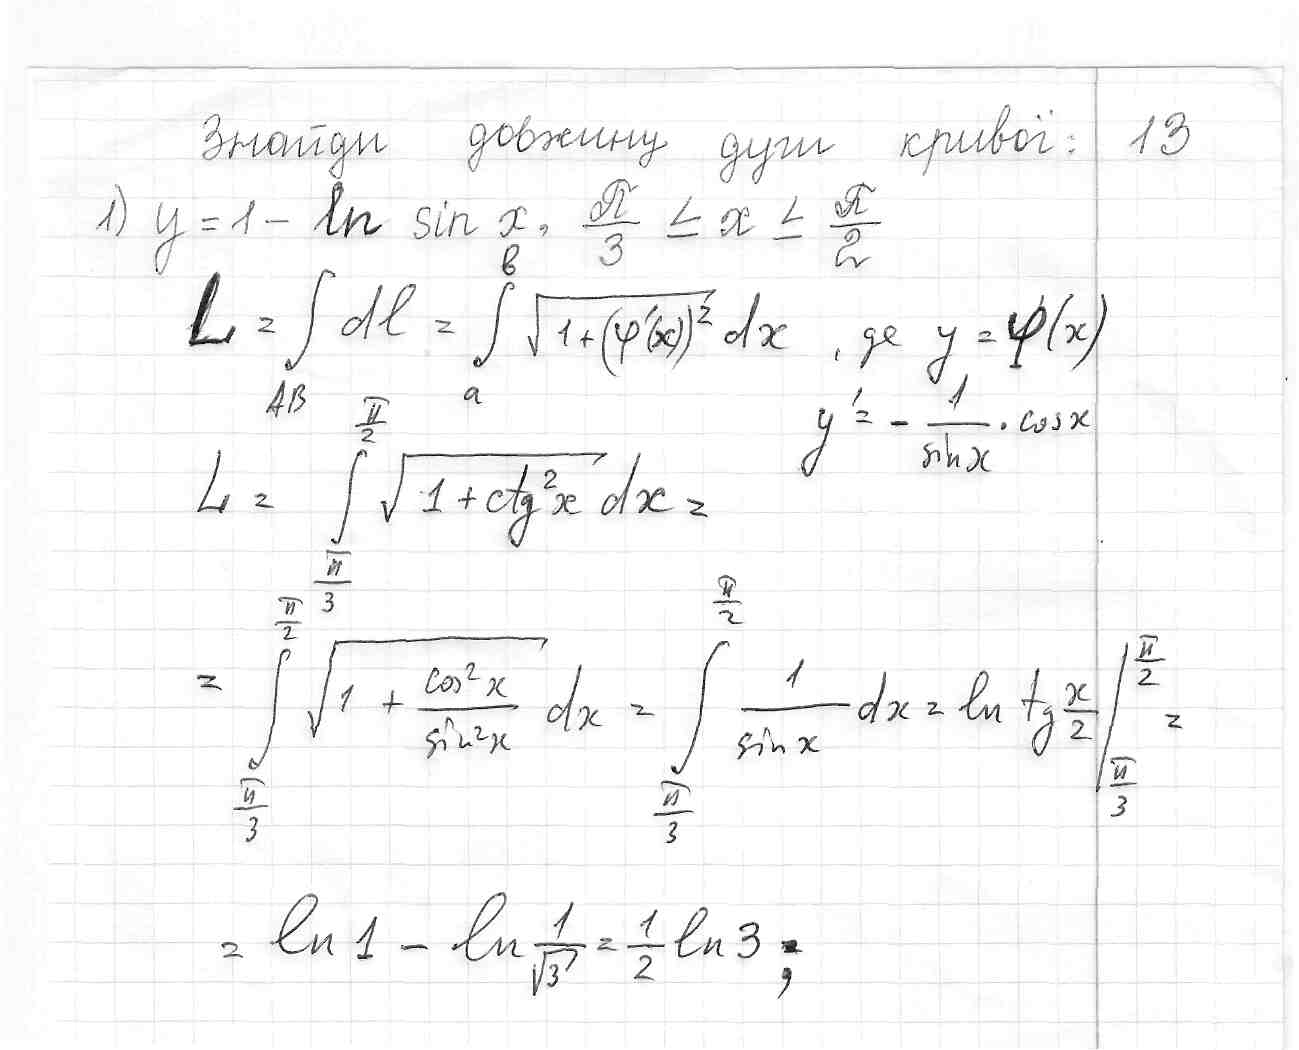 Знайди довжину дуги кривої: 13
1) y = 1 - ln sin x, π/3 ≤ x ≤ π/2
L = ∫_{AB} dl = ∫_a^b √(1+(φ'(x))²) dx, де y = φ(x)
y' = - 1/sin x · cos x
L = ∫_{π/3}^{π/2} √(1+ctg²x) dx =
= ∫_{π/3}^{π/2} √(1 + cos²x/sin²x) dx = ∫_{π/3}^{π/2} 1/sin x dx = ln tg x/2 |_{π/3}^{π/2} =
= ln 1 - ln 1/√3 = 1/2 ln 3;